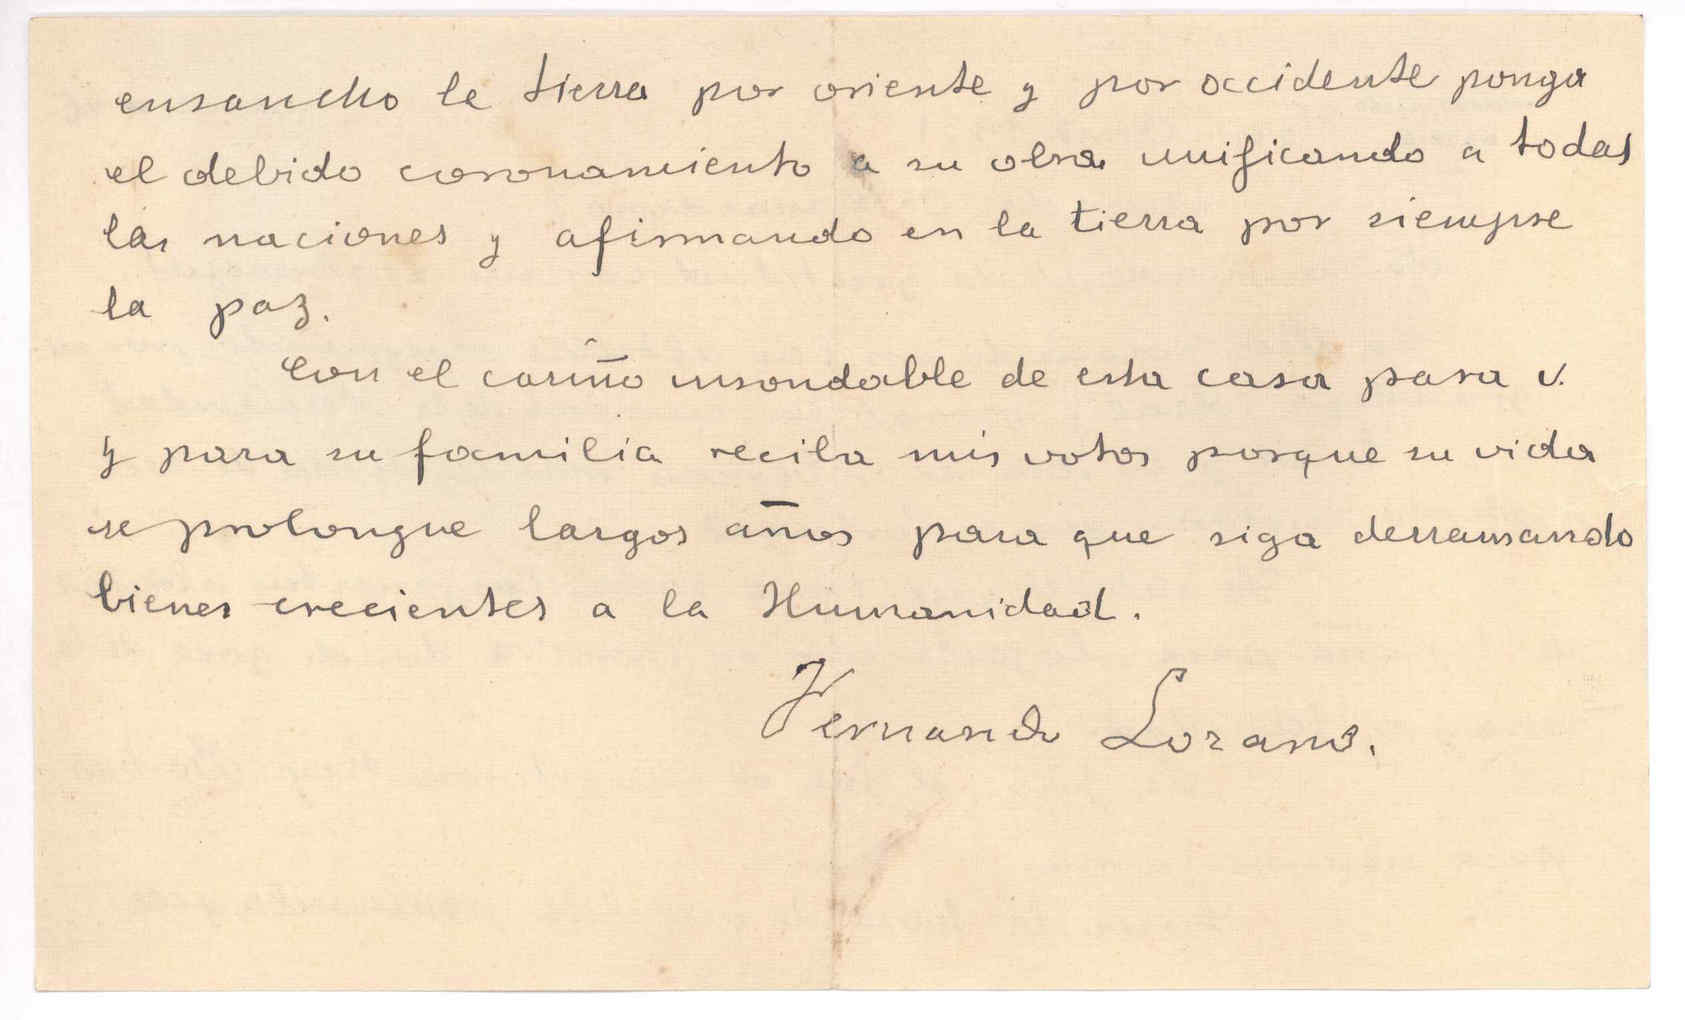 ensancho la tierra por oriente y por occidente ponga
el debido coronamiento a su obra unificando a todas
las naciones y afirmando en la tierra por siempre
la paz.
Con el cariño insondable de esta casa para v.
y para su familia reciba mis votos porque su vida
se prolongue largos años para que siga derramando
bienes crecientes a la Humanidad.
Fernando Lozano.